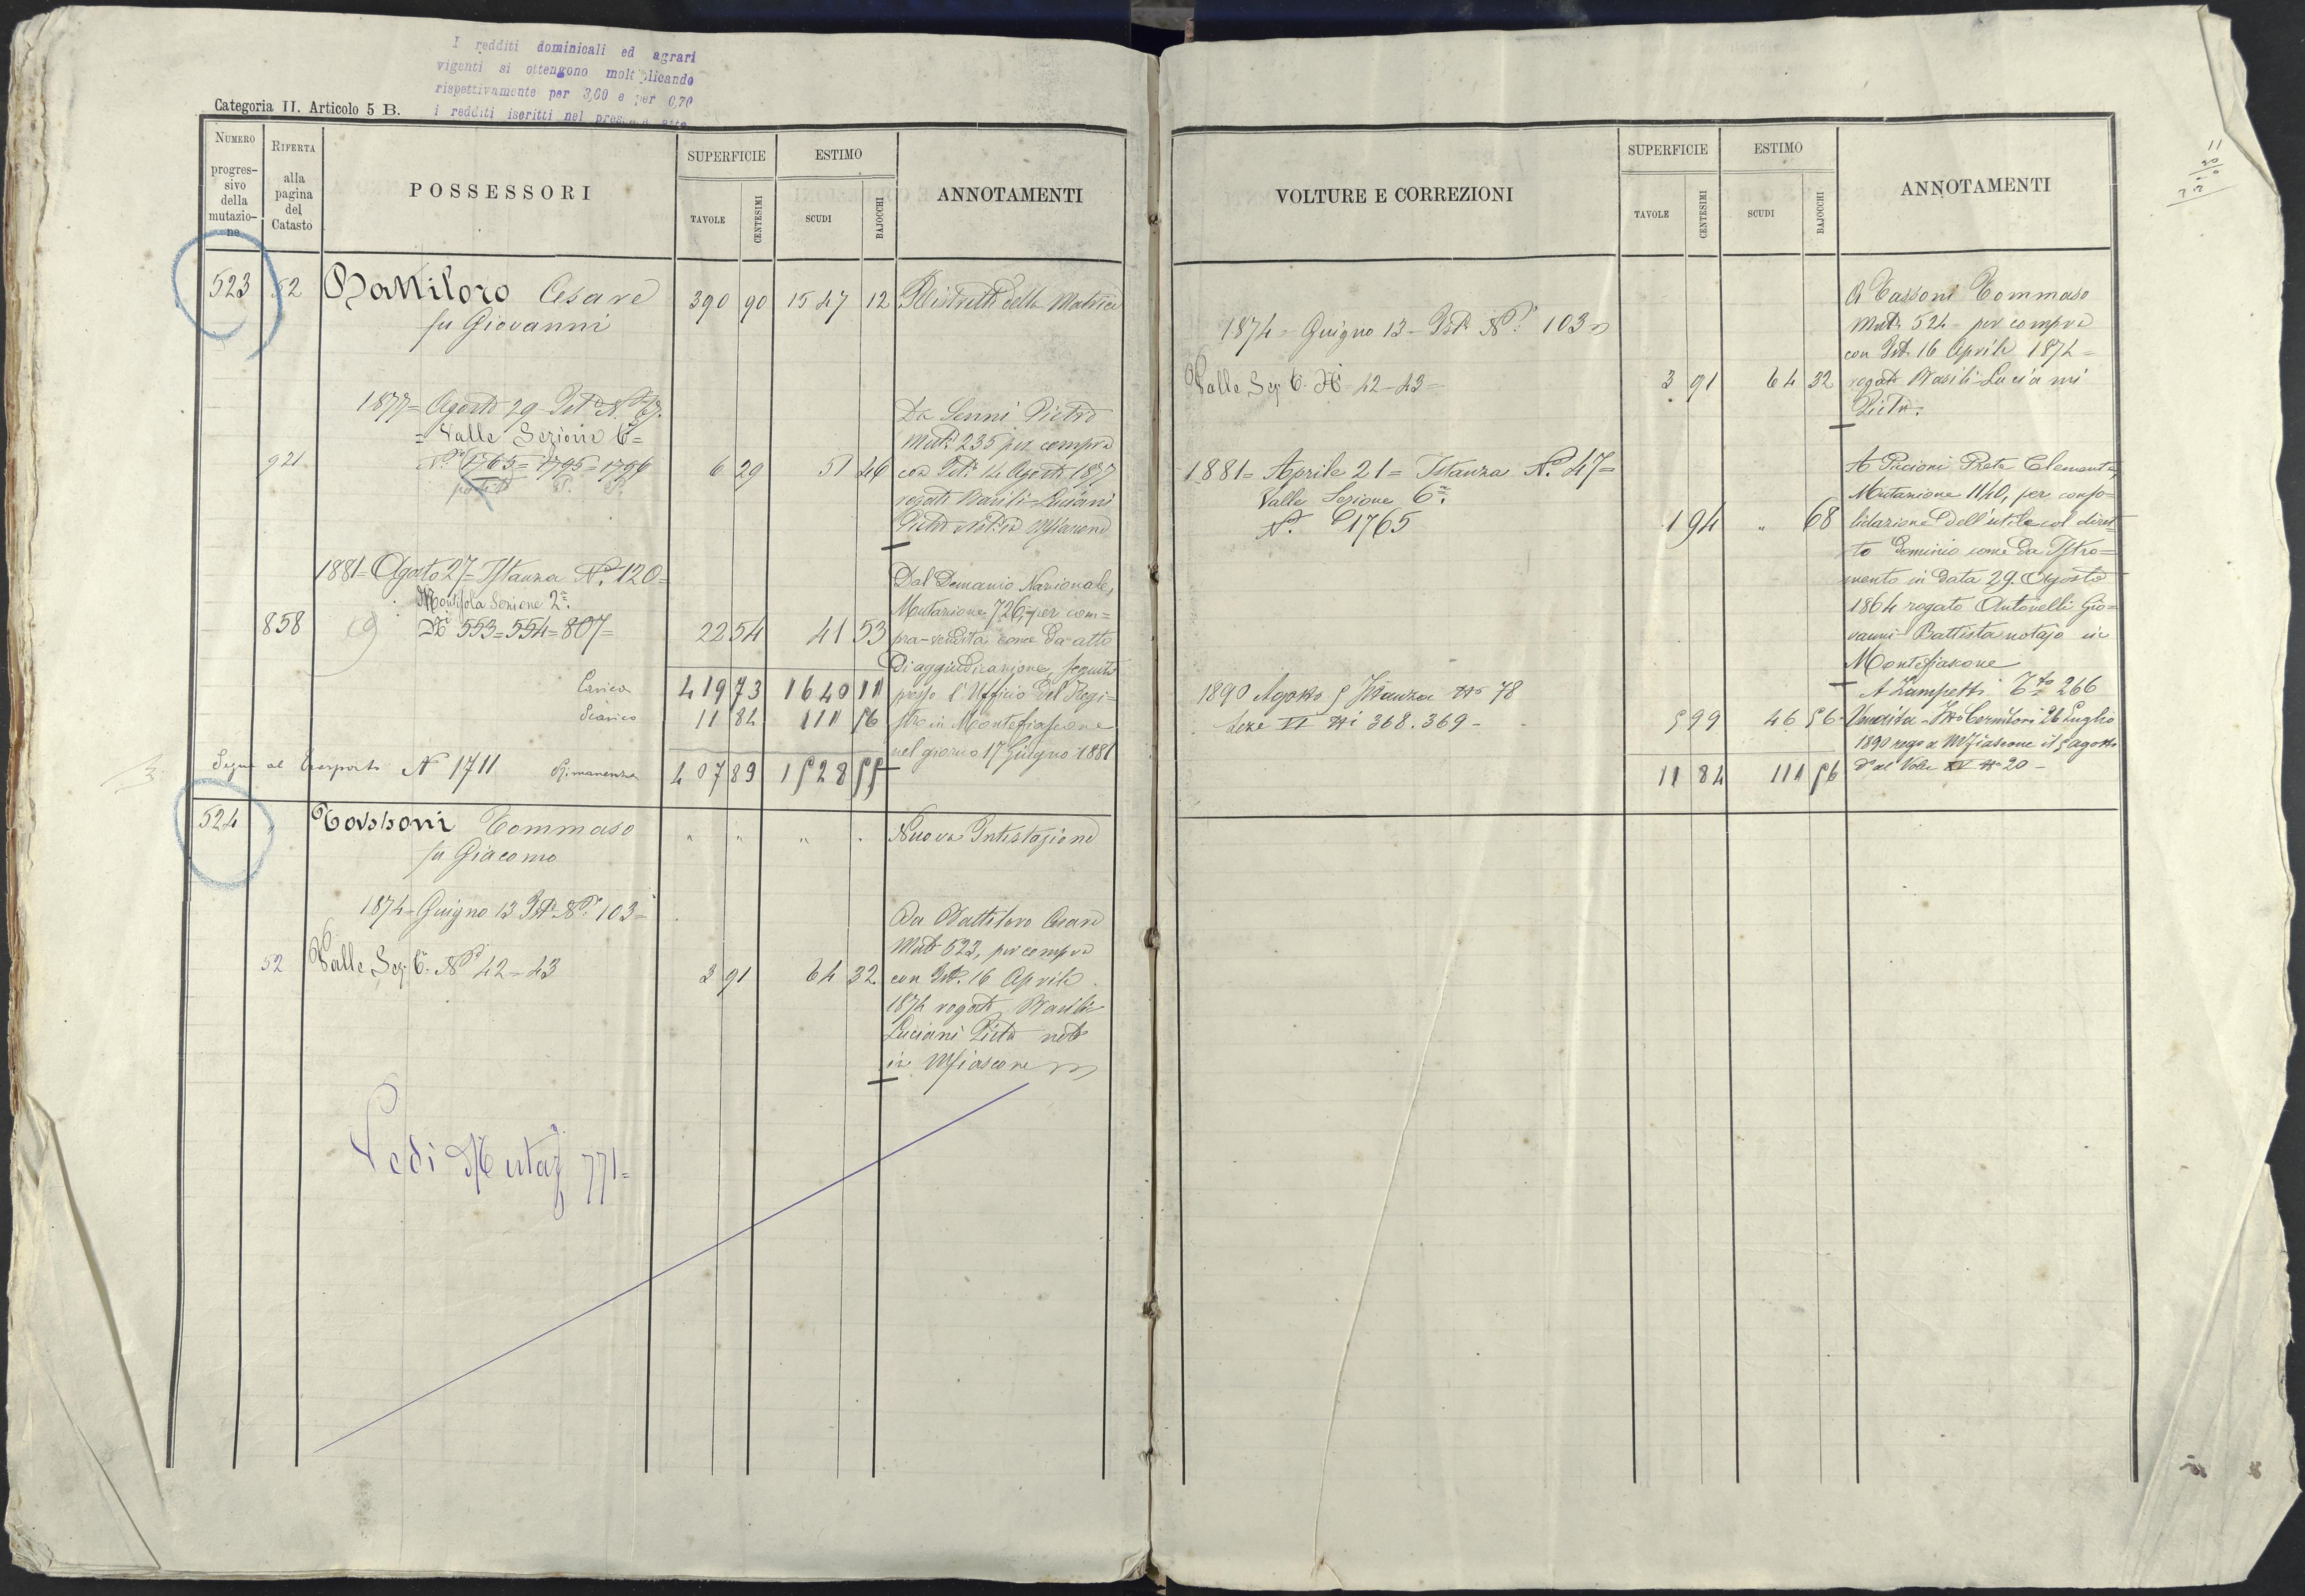 I redditi dominicali ed agrari
vigenti si ottengono moltiplicando
rispettivamente per 3,60 e per 0,70
i redditi iscritti nel presente atto
Categoria II. Articolo 5 B.
NUMERO progressivo della mutazione
RIFERTA alla pagina del Catasto
POSSESSORI
SUPERFICIE
TAVOLE
CENTESIMI
ESTIMO
SCUDI
BAJOCCHI
ANNOTAMENTI
523 52 Battiloro Cesare 390 90 1547 12
fu Giovanni
della Matrice
1877 = Agosto 29 Ist.
= Valle Sezione 6ª =
921 1765 = 1795 = 1796 6 29 51 46
Da Senni Pietro
Mut. 235 per compra
con Ist. 14 Agosto 1877
rogato Basili-Luciani
Pietro
1881 = Agosto 27 = Istanza Nº 120 =
Sezione 2ª
858 Ni 553 = 554 = 807 = 22 54 41 53
Dal Demanio Nazionale,
Mutazione 726, per com=
pra-vendita come da atto
di aggiudicazione seguito
presso l'Ufficio del Regi=
stro in Montefiascone
nel giorno 17 Giugno 1881
Carico 419 73 1640 11
Scarico 11 84 111 56
Segue al trasporto Nº 1711 Rimanenza 407 89 1528 55
524 " Tassoni Tommaso " " " "
fu Giacomo
Nuova Intestazione
1874 = Giugno 13 Ist. Nº 103 =
52 Valle Sez. 6ª Ni 42 = 43 3 91 64 32
Da Battiloro Cesare
Mut. 523, per compra
con Ist. 16 Aprile
1874 rogato Basili
Luciani Pietro not.
in Mfiascone
Vedi Mutaz 771 =
VOLTURE E CORREZIONI
SUPERFICIE
TAVOLE
CENTESIMI
ESTIMO
SCUDI
BAJOCCHI
ANNOTAMENTI
1874 = Giugno 13 = Ist. Nº 103
Valle Sez. 6ª Ni 42 = 43 = 3 91 64 32
A Tassoni Tommaso
Mut. 524 per compra
con Ist. 16 Aprile 1874 =
rogato Basili-Luciani
Pietro.
1881 = Aprile 21 = Istanza Nº 47 =
Valle Sezione 6ª
Nº 1765 1 94 " 68
A Pucioni Prete Clemente,
Mutazione 1140, per conso=
lidazione dell'utile col diret=
to dominio come da Istro=
mento in data 29 Agosto
1864 rogato Antonelli Gio=
vanni Battista notajo in
Montefiascone
1890 Agosto 5 Istanza Nº 78
Sezе VI Ni 368. 369 - 5 99 46 56
A Zampetti 266
Vendita 26 Luglio
1890 a Mfiascone il 5 agosto
Nº 20 -
11 84 111 56